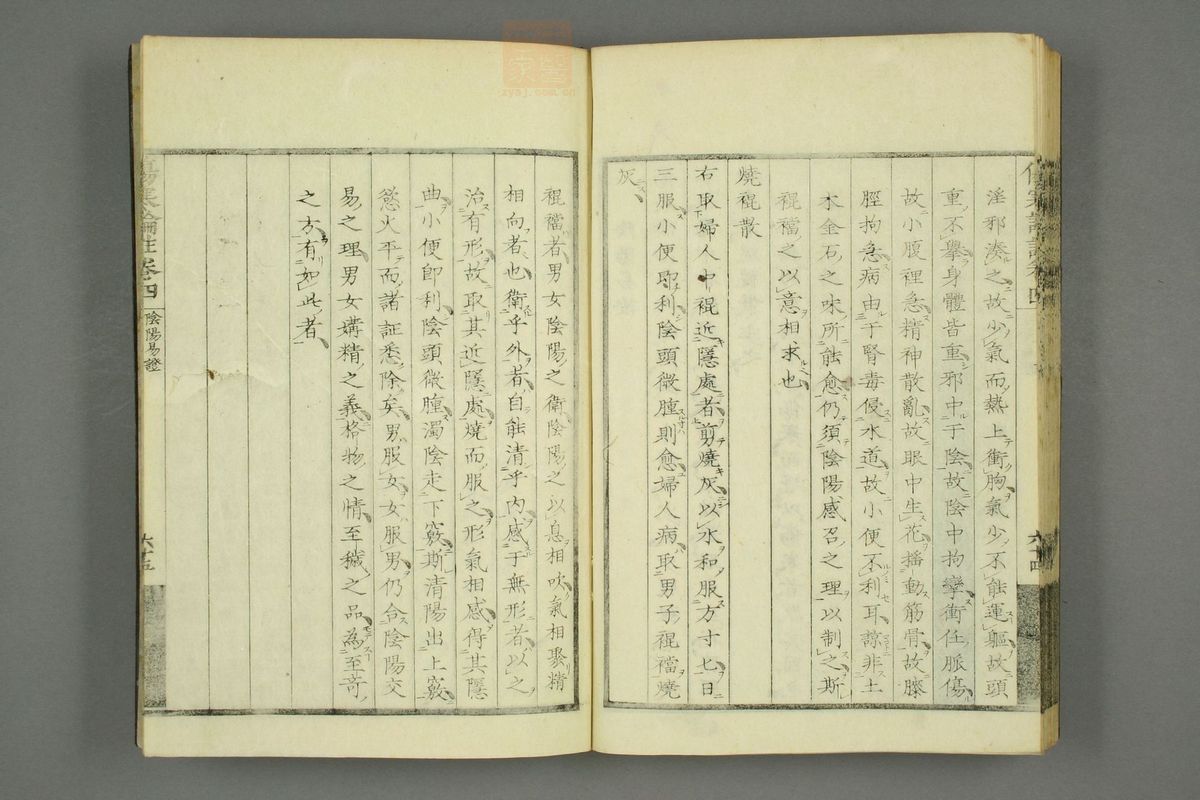 淫邪湊之故少氣而熱上衝胸氣少不能運軀故頭
重不舉身體皆重邪中于陰故陰中拘攣衝任脈傷
故小腹裡急精神散亂故眼中生花搖動筋骨故膝
脛拘急病由于腎毒侵水道故小便不利耳諒非土
木金石之味所能愈仍須陰陽感召之理以制之斯
裩襠之以意相求也
燒裩散
右取婦人中裩近隱處者剪燒灰以水和服方寸匕日
三服小便卽利陰頭微腫則愈婦人病取男子裩襠燒
灰
裩襠者男女陰陽之衛陰陽之以息相吹氣相聚精
相向者也衛乎外者自能清乎内感于無形者以之
治有形故取其近隱處燒而服形氣相感得其隱
曲小便卽利陰頭微腫濁陰走下竅斯清陽出上竅
慾火平而諸証悉除矣男服女女服男仍合陰陽交
易之理男女媾精之義格物之情至穢之品為至奇
之方有如此者
傷寒論註卷四 陰陽易證
zysj.com.cn